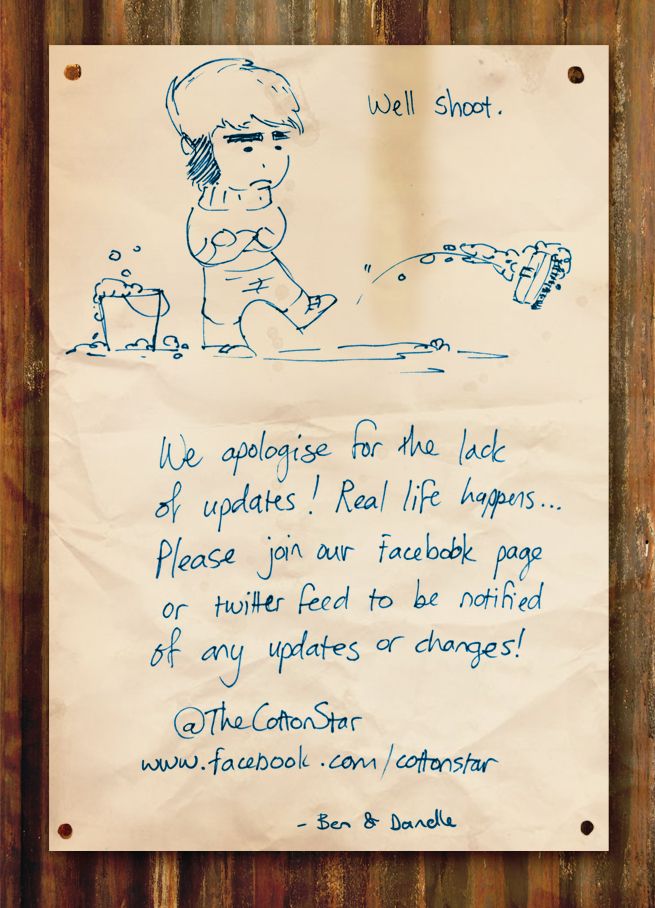 Well shoot.
We apologise for the lack
of updates! Real life happens...
Please join our Facebook page
or twitter feed to be notified
of any updates or changes!
@TheCottonStar
www.facebook.com/cottonstar
- Ben & Danelle